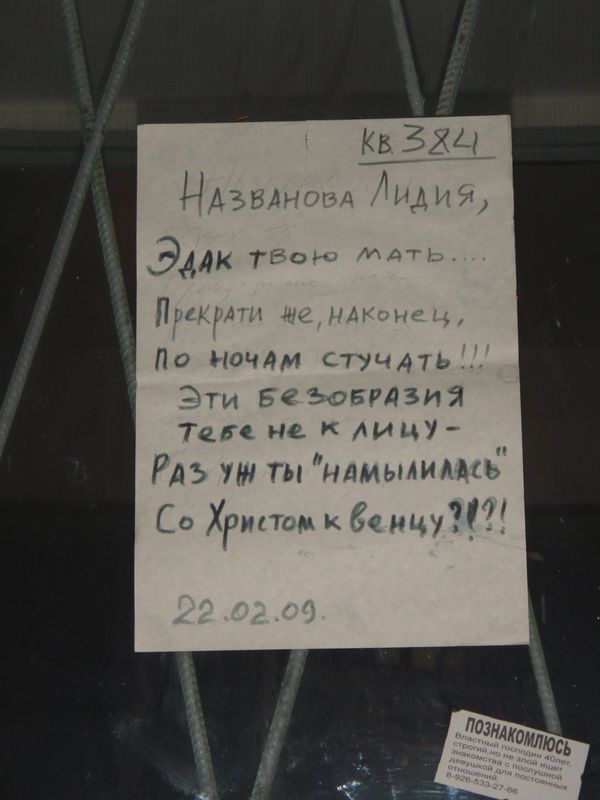 кв. 384
Названова Лидия,
Эдак твою мать....
Прекрати же, наконец,
по ночам стучать!!!
Эти безобразия
тебе не к лицу-
Раз уж ты "намылилась"
Со Христом к венцу?!?!
22.02.09.
ПОЗНАКОМЛЮСЬ
Властный господин 40лет,
строгий, но не злой ищет
знакомства с послушной
девушкой для постоянных
отношений.
8-926-533-27-66